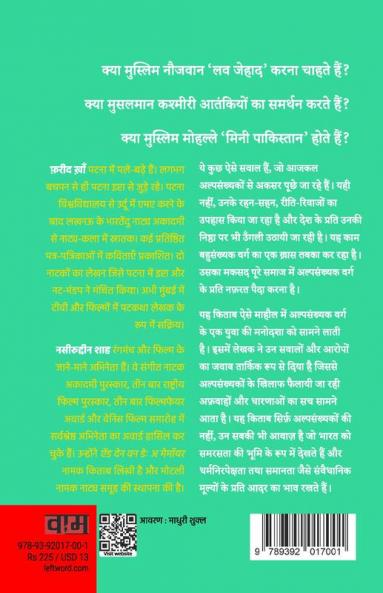 क्या मुस्लिम नौजवान ‘लव जेहाद’ करना चाहते हैं?
क्या मुसलमान कश्मीरी आतंकियों का समर्थन करते हैं?
क्या मुस्लिम मोहल्ले ‘मिनी पाकिस्तान’ होते हैं?
फ़रीद ख़ाँ पटना में पले-बढ़े हैं। लगभग
बचपन से ही पटना इप्टा से जुड़े रहे। पटना
विश्वविद्यालय से उर्दू में एमए करने के
बाद लखनऊ के भारतेंदु नाट्य अकादमी
से नाट्य-कला में स्नातक। कई प्रतिष्ठित
पत्र-पत्रिकाओं में कविताएँ प्रकाशित। दो
नाटकों का लेखन जिसे पटना में इप्टा और
नट-मंडप ने मंचित किया। अभी मुंबई में
टीवी और फिल्मों में पटकथा लेखक के
रूप में सक्रिय।
नसीरुद्दीन शाह रंगमंच और फिल्म के
जाने-माने अभिनेता हैं। ये संगीत नाटक
अकादमी पुरस्कार, तीन बार राष्ट्रीय
फिल्म पुरस्कार, तीन बार फिल्मफेयर
अवार्ड और वेनिस फिल्म समारोह में
सर्वश्रेष्ठ अभिनेता का अवार्ड हासिल कर
चुके हैं। उन्होंने ऐंड देन वन डे: अ मेमॉयर
नामक किताब लिखी है और मोटली
नामक नाट्य समूह की स्थापना की है।
ये कुछ ऐसे सवाल हैं, जो आजकल
अल्पसंख्यकों से अकसर पूछे जा रहे हैं। यही
नहीं, उनके रहन-सहन, रीति-रिवाजों का
उपहास किया जा रहा है और देश के प्रति उनकी
निष्ठा पर भी उँगली उठायी जा रही है। यह काम
बहुसंख्यक वर्ग का एक ख़ास तबका कर रहा है।
उसका मकसद पूरे समाज में अल्पसंख्यक वर्ग
के प्रति नफ़रत पैदा करना है।
यह किताब ऐसे माहौल में अल्पसंख्यक वर्ग
के एक युवा की मनोदशा को सामने लाती
है। इसमें लेखक ने उन सवालों और आरोपों
का जवाब तार्किक रूप से दिया है जिससे
अल्पसंख्यकों के खिलाफ फैलायी जा रही
अफ़वाहों और धारणाओं का सच सामने
आता है। यह किताब सिर्फ़ अल्पसंख्यकों की
नहीं, उन सबकी भी आवाज़ है जो भारत को
समरसता की भूमि के रूप में देखते हैं और
धर्मनिरपेक्षता तथा समानता जैसे संवैधानिक
मूल्यों के प्रति आदर का भाव रखते हैं।
वाम
978-93-92017-00-1
Rs 225 / USD 13
leftword.com
Visit website
आवरण : माधुरी शुक्ल
9 789392 017001